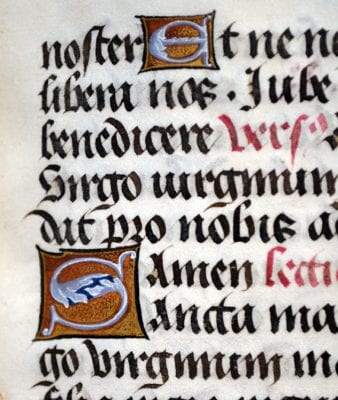 noster Et ne no
libera nos. Jube
benedicere Vers
Virgo virginum
dat pro nobis ad
Amen lectio
Sancta ma
go virginum in